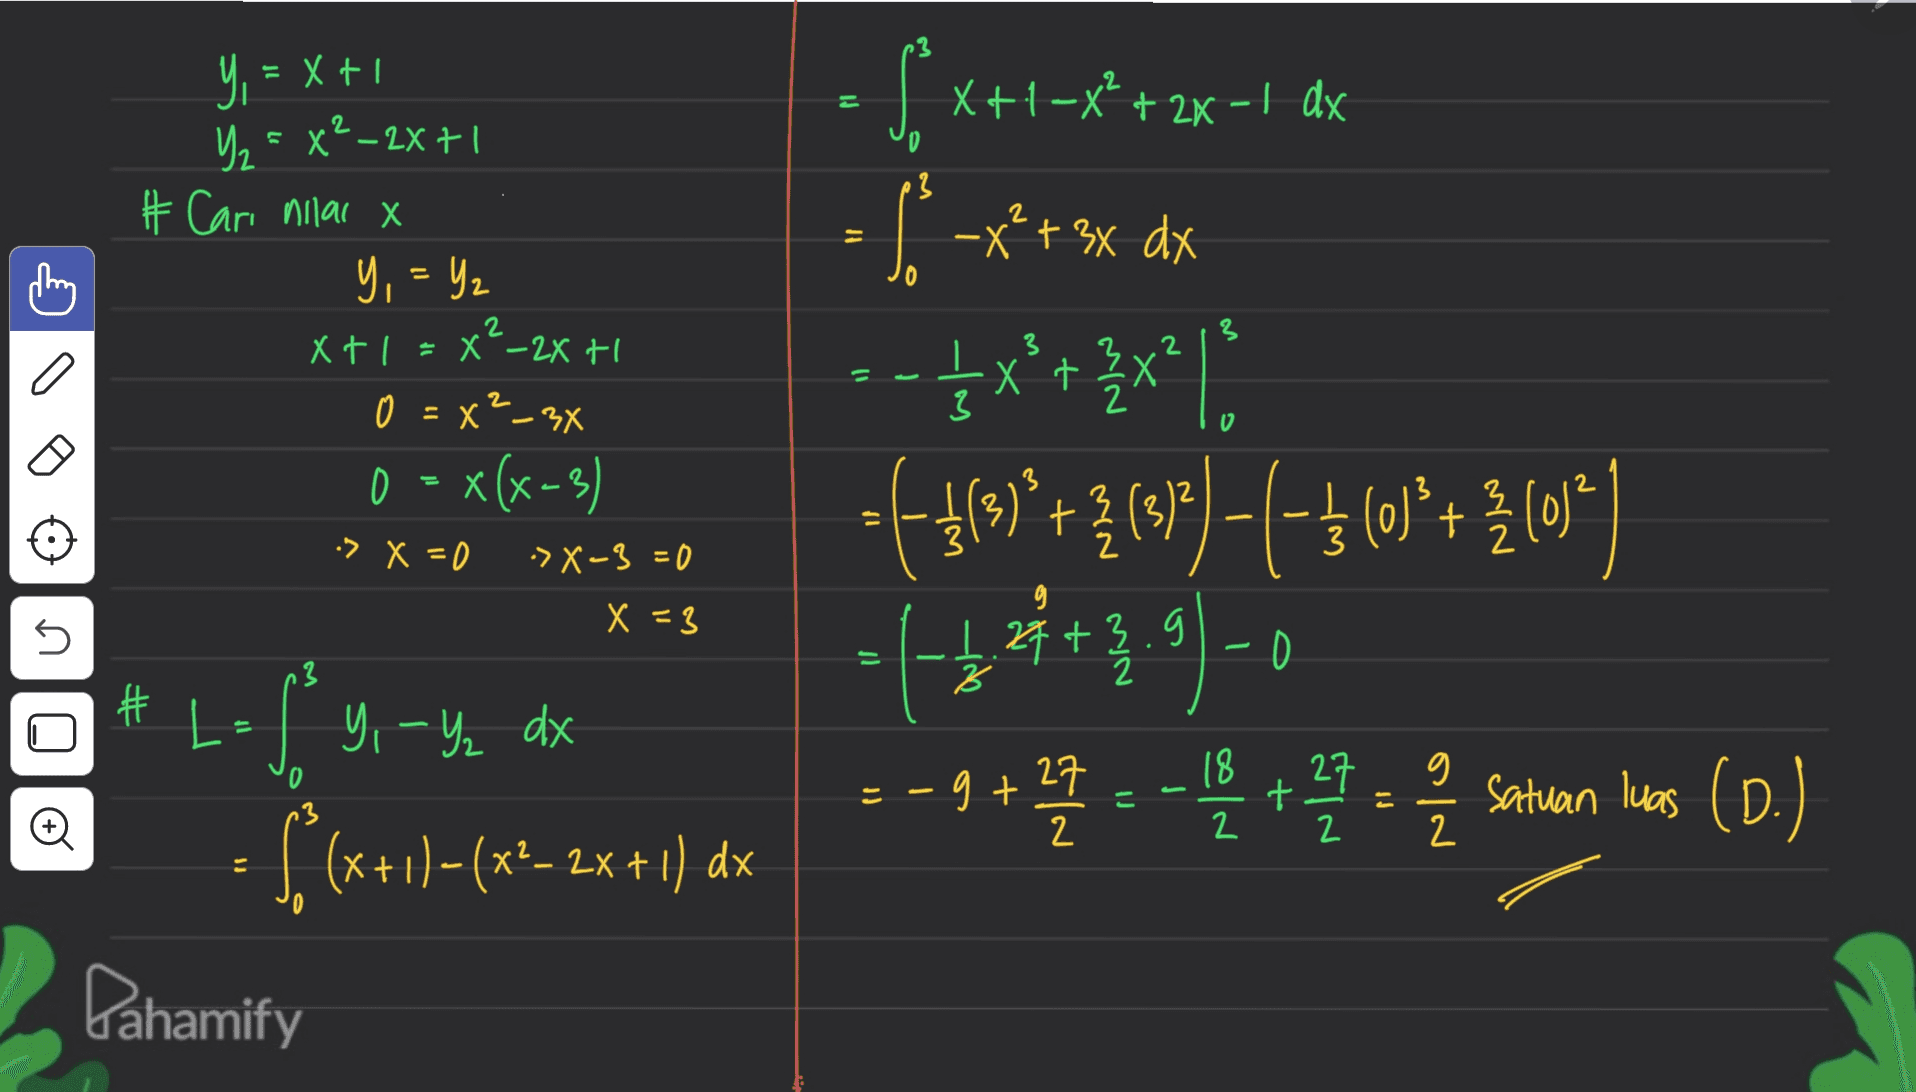 y₁ = x + 1
y₂ = x² – 2x + 1
# Cari nilai x
y₁ = y₂
x + 1 = x² – 2x + 1
0 = x² – 3x
0 = x(x – 3)
·> x = 0 ·> x – 3 = 0
x = 3
# L = ∫₀³ y₁ – y₂ dx
= ∫₀³ (x+1) – (x² – 2x + 1) dx
= ∫₀³ x + 1 – x² + 2x – 1 dx
= ∫₀³ –x² + 3x dx
= – 1/3 x³ + 3/2 x² |₀³
= (– 1/3 (3)³ + 3/2 (3)²) – (– 1/3 (0)³ + 3/2 (0)²)
= (– 1/3 . 27 9 + 3/2 . 9) – 0
= – 9 + 27/2 = – 18/2 + 27/2 = 9/2 Satuan luas (D.)
Pahamify